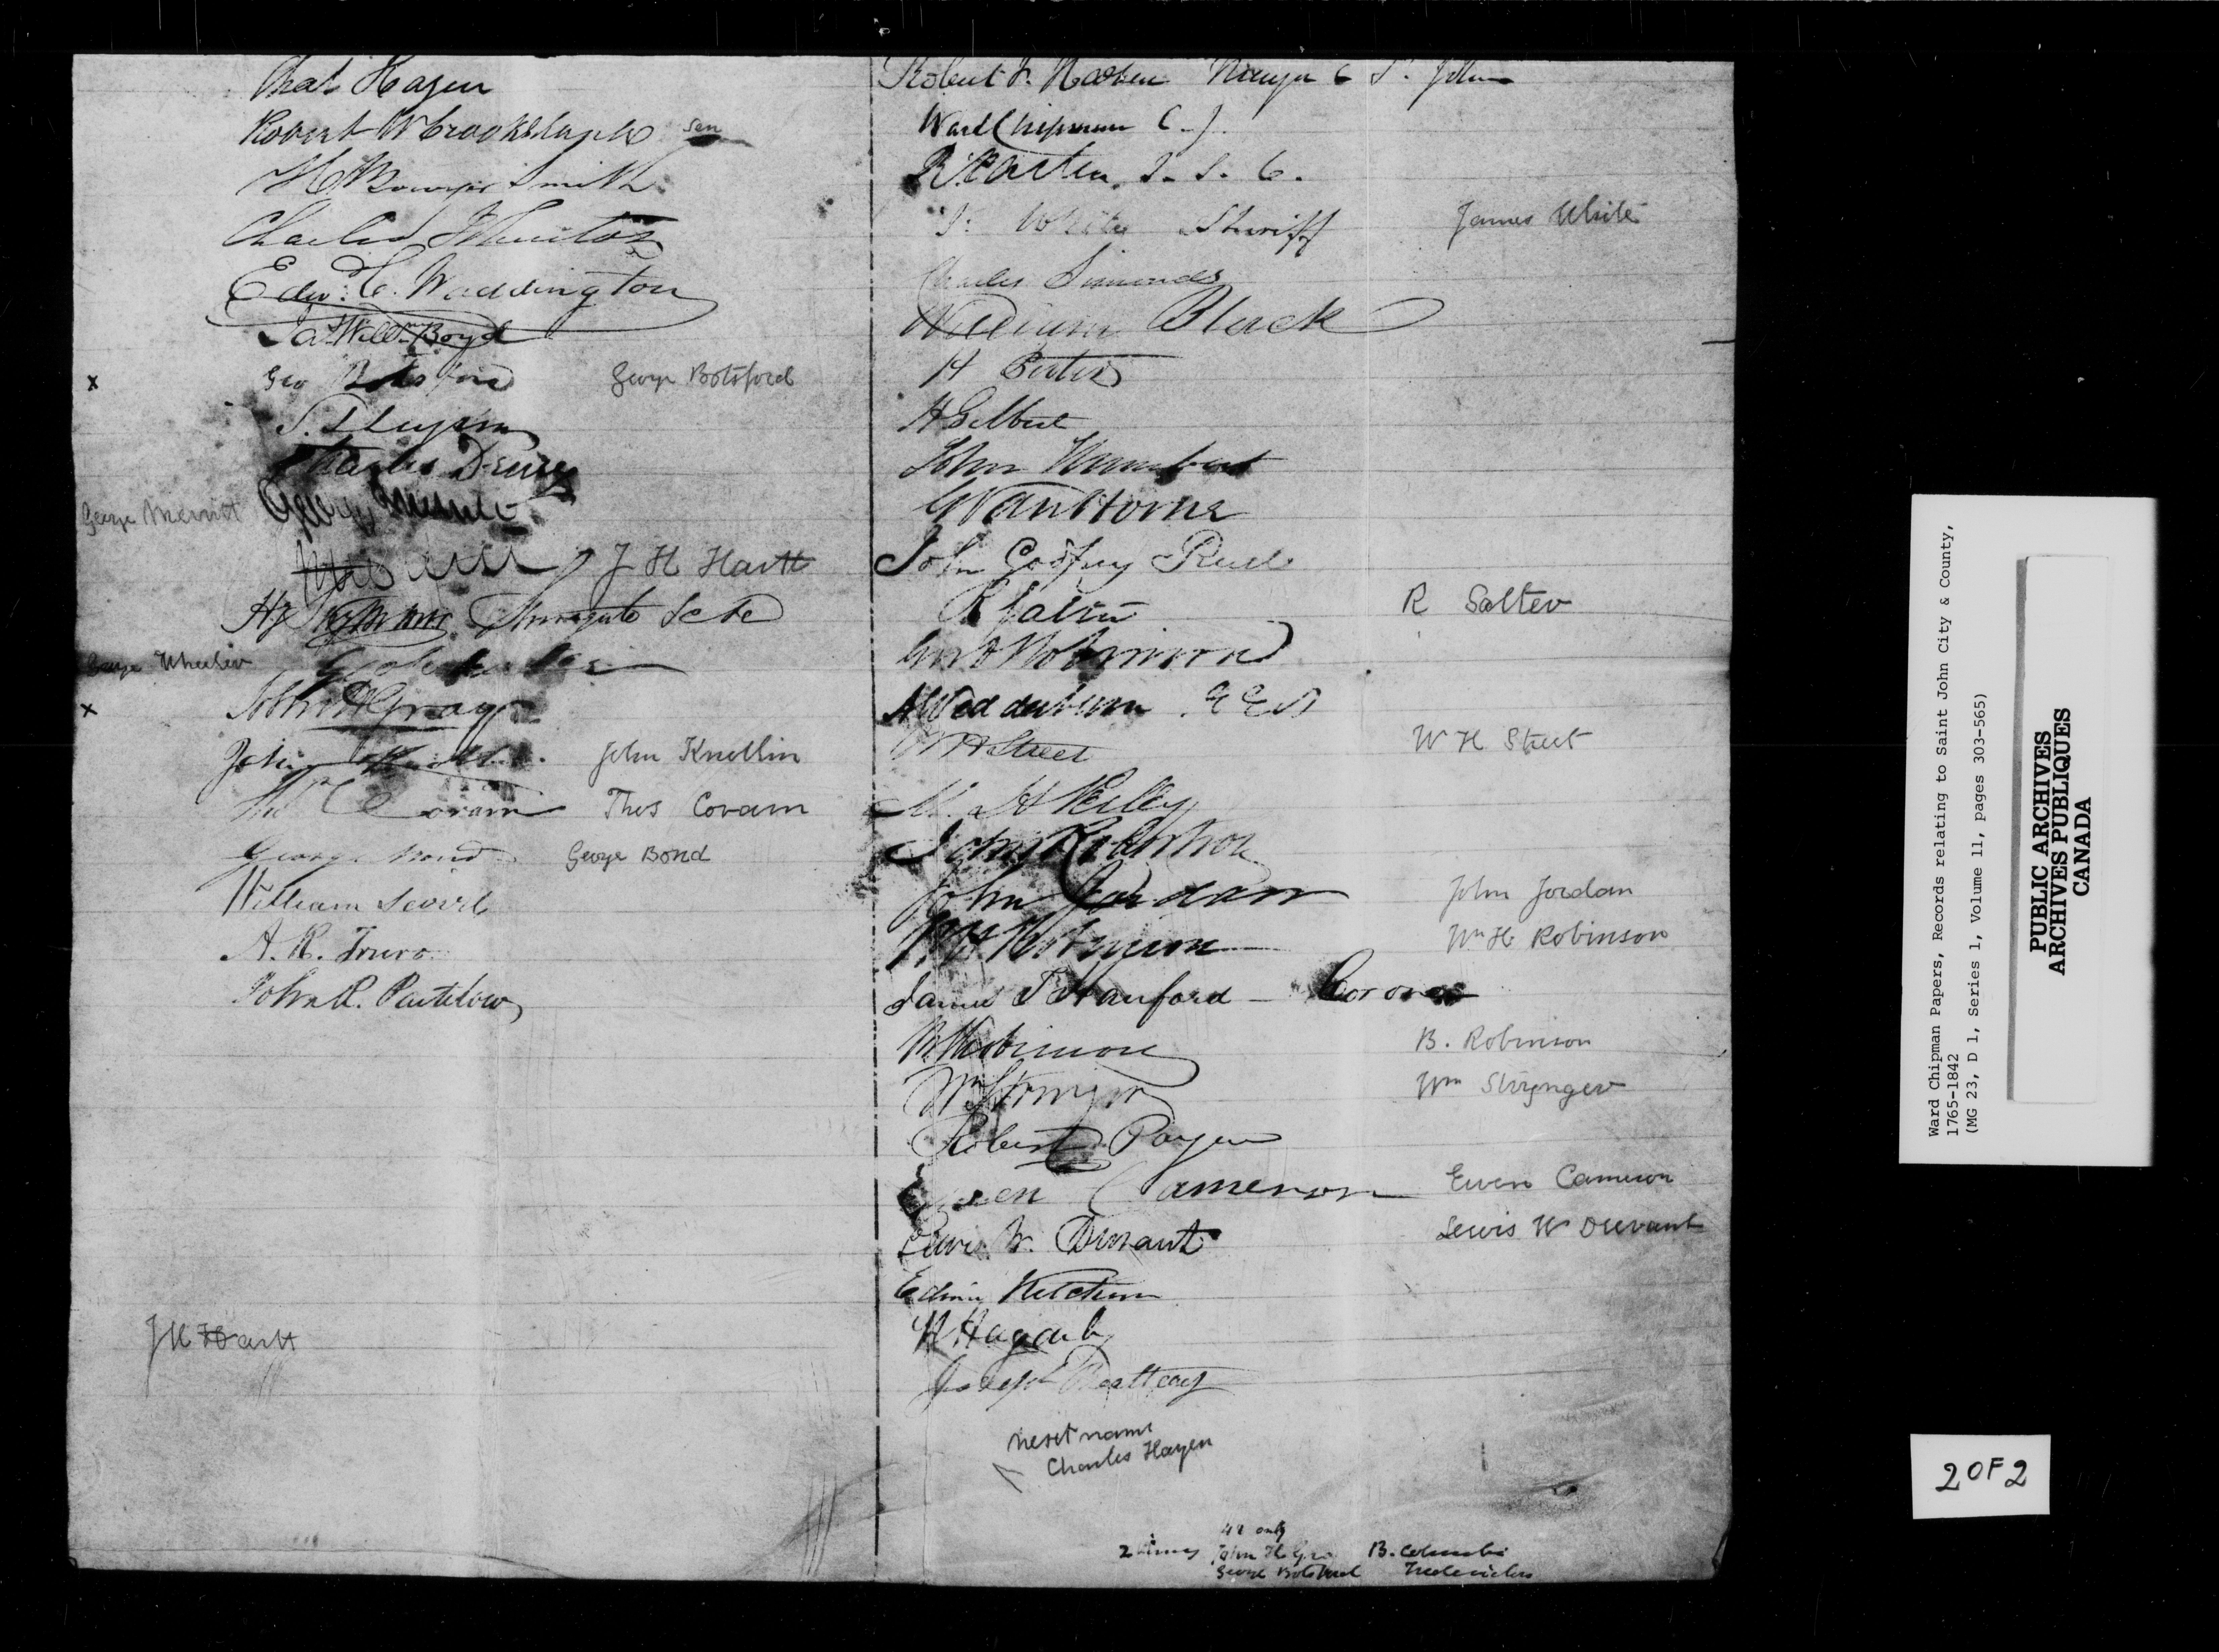 Chas Hazen
Robert W Crookshank Sen
H Bowyer Smith
Charles Johnston
Edw. C. Waddington
Jas Willm Boyd
x Geo Botsford George Botsford
Charles Drury
George Merritt George Merritt
J H Hartt
Surrogate
George Wheeler
x John H Gray
John Knollin
Thos Coram Thos Coram
George Bond George Bond
William Scovil
A. R. Truro
John R. Partelow
J H Hartt
Robert F. Hazen Mayor St. John
Ward Chipman C. J.
R. Parker
White Sheriff James White
Charles Simonds
William Black
H Porter
H Gilbert
John Humbert
G VanHorne
John Godfrey
R Salter R Salter
A Wedderburn
W H Street W H Street
M. H Perley
John Robertson
John Jordan John Jordan
W H Robinson Wm H Robinson
James T Hanford – Coroner
B Robinson B. Robinson
Wm Stringer Wm Stringer
Robert Payne
Ewen Cameron Ewen Cameron
Lewis W. Durant Lewis W Durant
Edwin Ketchum
Joseph Beatteay
next name
Charles Hazen
only
2 living John H Gray B. Columbia
George Botsford Fredericton
Ward Chipman Papers, Records relating to Saint John City & County,
1765-1842
(MG 23, D 1, Series 1, Volume 11, pages 303-565)
PUBLIC ARCHIVES
ARCHIVES PUBLIQUES
CANADA
2 OF 2